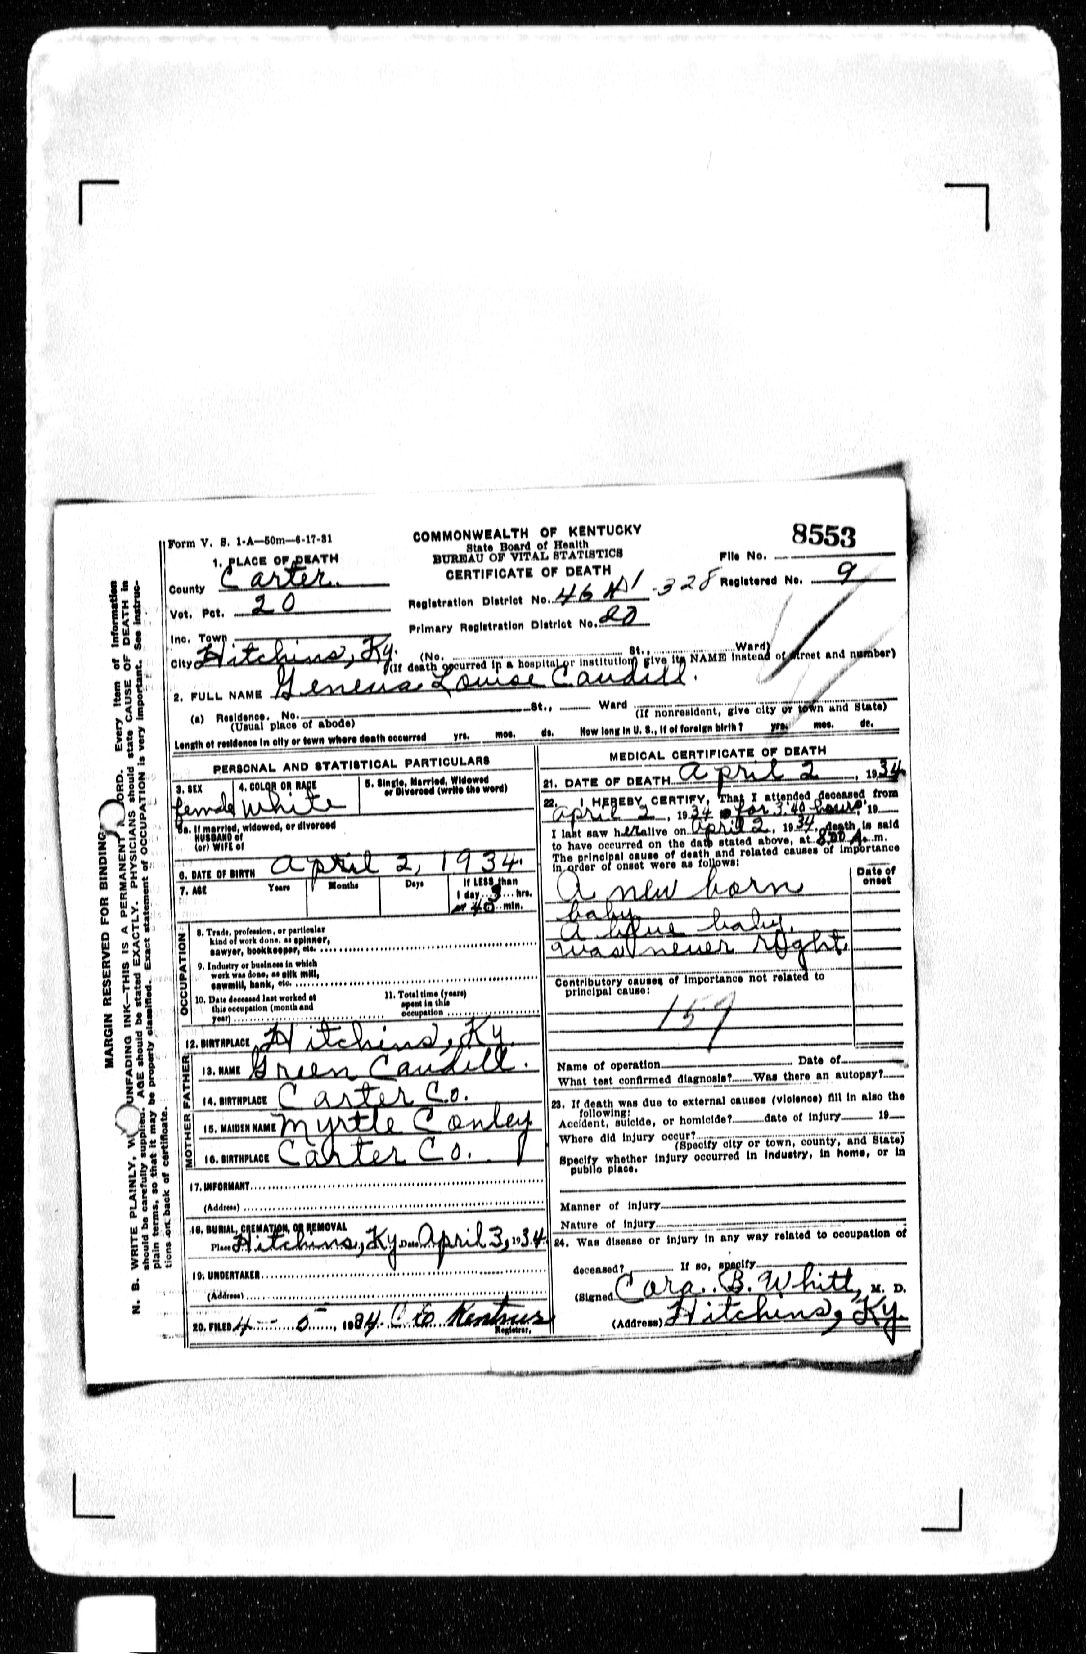 Form V. S. 1-A—50m—6-17-31
COMMONWEALTH OF KENTUCKY
State Board of Health
BUREAU OF VITAL STATISTICS
CERTIFICATE OF DEATH
8553
File No.
Registered No. 9
1. PLACE OF DEATH
County Carter
Vot. Pct. 20
Registration District No. 46 328
Primary Registration District No. 20
Inc. Town
City Hitchins, Ky. (No. St., Ward)
(If death occurred in a hospital or institution, give its NAME instead of street and number)
2. FULL NAME Geneva Louise Caudill.
(a) Residence. No. St., Ward
(Usual place of abode) (If nonresident, give city or town and State)
Length of residence in city or town where death occurred yrs. mos. ds. How long in U. S., if of foreign birth? yrs. mos. ds.
PERSONAL AND STATISTICAL PARTICULARS
3. SEX 4. COLOR OR RACE 5. Single, Married, Widowed
or Divorced (write the word)
female White
5a. If married, widowed, or divorced
HUSBAND of
(or) WIFE of
6. DATE OF BIRTH April 2, 1934.
7. AGE Years Months Days If LESS than
1 day 3 hrs.
or 40 min.
OCCUPATION
8. Trade, profession, or particular
kind of work done, as spinner,
sawyer, bookkeeper, etc.
9. Industry or business in which
work was done, as silk mill,
sawmill, bank, etc.
10. Date deceased last worked at
this occupation (month and
year)
11. Total time (years)
spent in this
occupation
12. BIRTHPLACE Hitchins, Ky.
FATHER
13. NAME Green Caudill.
14. BIRTHPLACE Carter Co.
MOTHER
15. MAIDEN NAME Myrtle Conley
16. BIRTHPLACE Carter Co.
17. INFORMANT
(Address)
18. BURIAL, CREMATION, OR REMOVAL
Place Hitchins, Ky Date April 3, 1934.
19. UNDERTAKER
(Address)
20. FILED 4-5, 1934. C E
Registrar.
MEDICAL CERTIFICATE OF DEATH
21. DATE OF DEATH April 2, 1934
22. I HEREBY CERTIFY, That I attended deceased from
April 2, 1934 for 3:40 hours, 19
I last saw her alive on April 2, 1934, death is said
to have occurred on the date stated above, at A. m.
The principal cause of death and related causes of importance
in order of onset were as follows:
Date of
onset
A new born
baby
A blue baby.
was never right
Contributory causes of importance not related to
principal cause:
159
Name of operation Date of
What test confirmed diagnosis? Was there an autopsy?
23. If death was due to external causes (violence) fill in also the
following:
Accident, suicide, or homicide? date of injury 19
Where did injury occur?
(Specify city or town, county, and State)
Specify whether injury occurred in industry, in home, or in
public place.
Manner of injury
Nature of injury
24. Was disease or injury in any way related to occupation of
deceased? If so, specify
(Signed) Cora. B. Whitt, M. D.
(Address) Hitchins, Ky.
MARGIN RESERVED FOR BINDING
N. B. WRITE PLAINLY, UNFADING INK—THIS IS A PERMANENT Every item of information
should be carefully supplied. AGE should be stated EXACTLY. PHYSICIANS should state CAUSE OF DEATH in
plain terms, so that it may be properly classified. Exact statement of OCCUPATION is very important. See instruc-
tions on back of certificate.